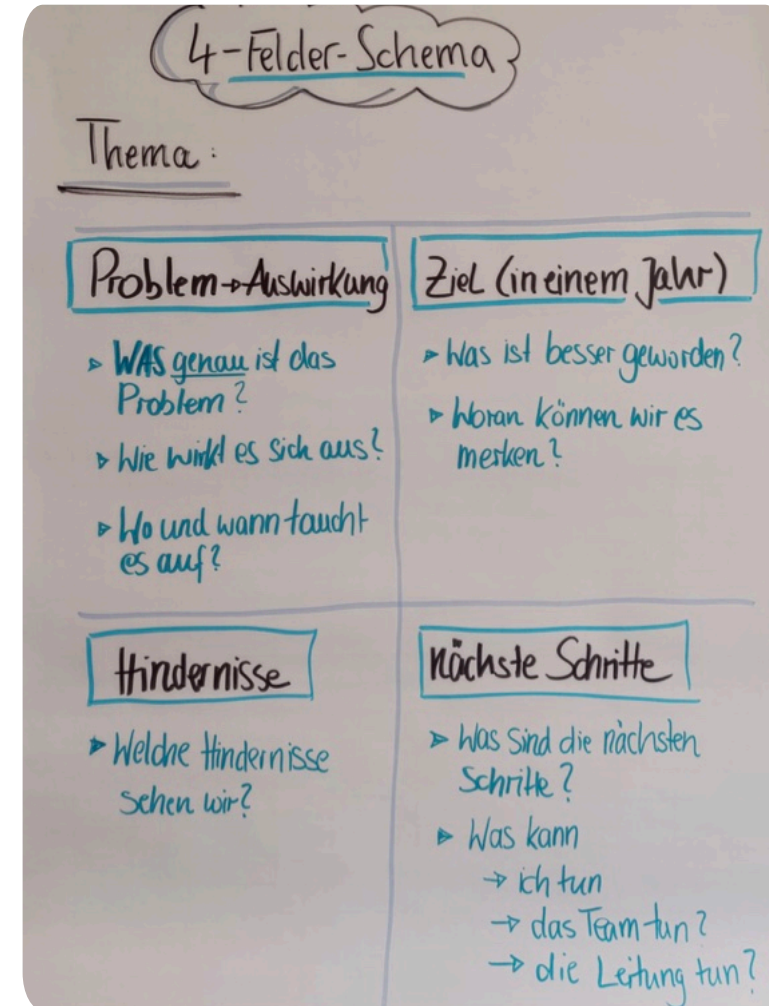 4-Felder-Schema
Thema:
Problem→Auswirkung
▹ WAS genau ist das
Problem?
▹ Wie wirkt es sich aus?
▹ Wo und wann taucht
es auf?
Ziel (in einem Jahr)
▹ Was ist besser geworden?
▹ Woran können wir es
merken?
Hindernisse
▹ Welche Hindernisse
sehen wir?
nächste Schritte
▹ Was sind die nächsten
Schritte?
▹ Was kann
→ ich tun
→ das Team tun?
→ die Leitung tun?